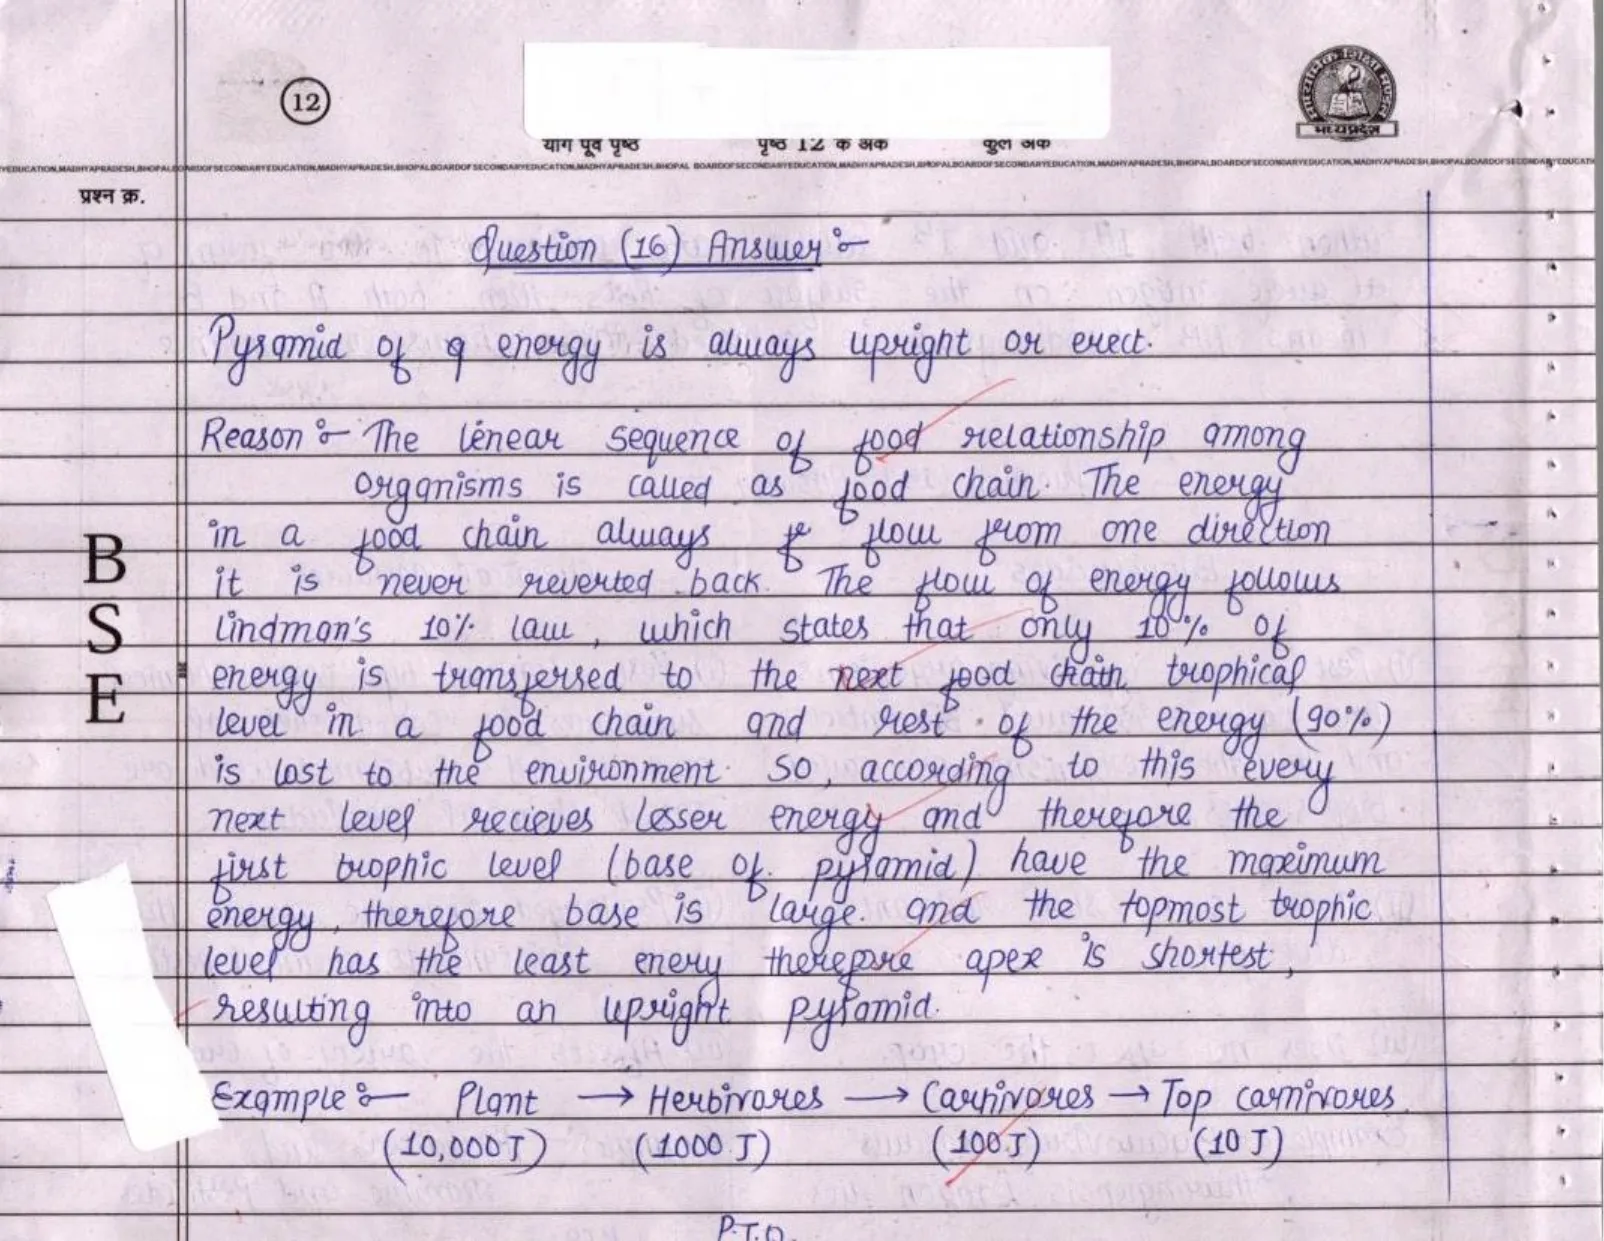 12
याग पूर्व पृष्ठ पृष्ठ 12 के अंक कुल अंक
मध्यप्रदेश
BOARD OF SECONDARY EDUCATION, MADHYA PRADESH, BHOPAL
प्रश्न क्र.
Question (16) Answer :-
Pyramid of q energy is always upright or erect.
Reason :- The linear sequence of food relationship among
organisms is called as food chain. The energy
in a food chain always f flow from one direction
it is never reverted back. The flow of energy follows
Lindman's 10% law, which states that only 10% of
energy is transfersed to the next food chain trophical
level in a food chain and rest of the energy (90%)
is lost to the environment. So, according to this every
next level recieves lesser energy and therefore the
first trophic level (base of pyramid) have the maximum
energy, therefore base is large. and the topmost trophic
level has the least enery therefore apex is shortest,
resulting into an upright pyramid.
Example :- Plant → Herbivores → Carnivores → Top carnivores
(10,000 J) (1000 J) (100 J) (10 J)
P.T.O.
B
S
E